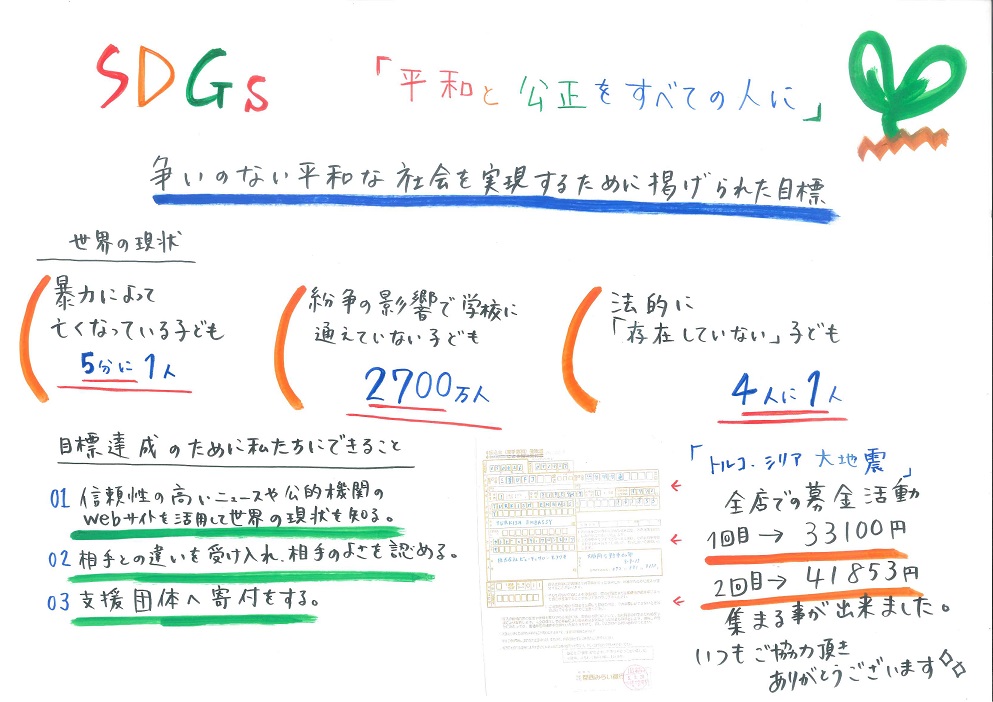 SDGs
「平和と公正をすべての人に」
争いのない平和な社会を実現するために掲げられた目標
世界の現状
暴力によって
亡くなっている子ども
5分に1人
紛争の影響で学校に
通えていない子ども
2700万人
法的に
「存在していない」子ども
4人に1人
目標達成のために私たちにできること
01 信頼性の高いニュースや公的機関の
Webサイトを活用して世界の現状を知る。
02 相手との違いを受け入れ、相手のよさを認める。
03 支援団体へ寄付をする。
TURKISH EMBASSY
「トルコ・シリア大地震」
← 全店での募金活動
← 1回目→33100円
← 2回目→41853円
集まる事が出来ました。
いつもご協力頂き
ありがとうございます